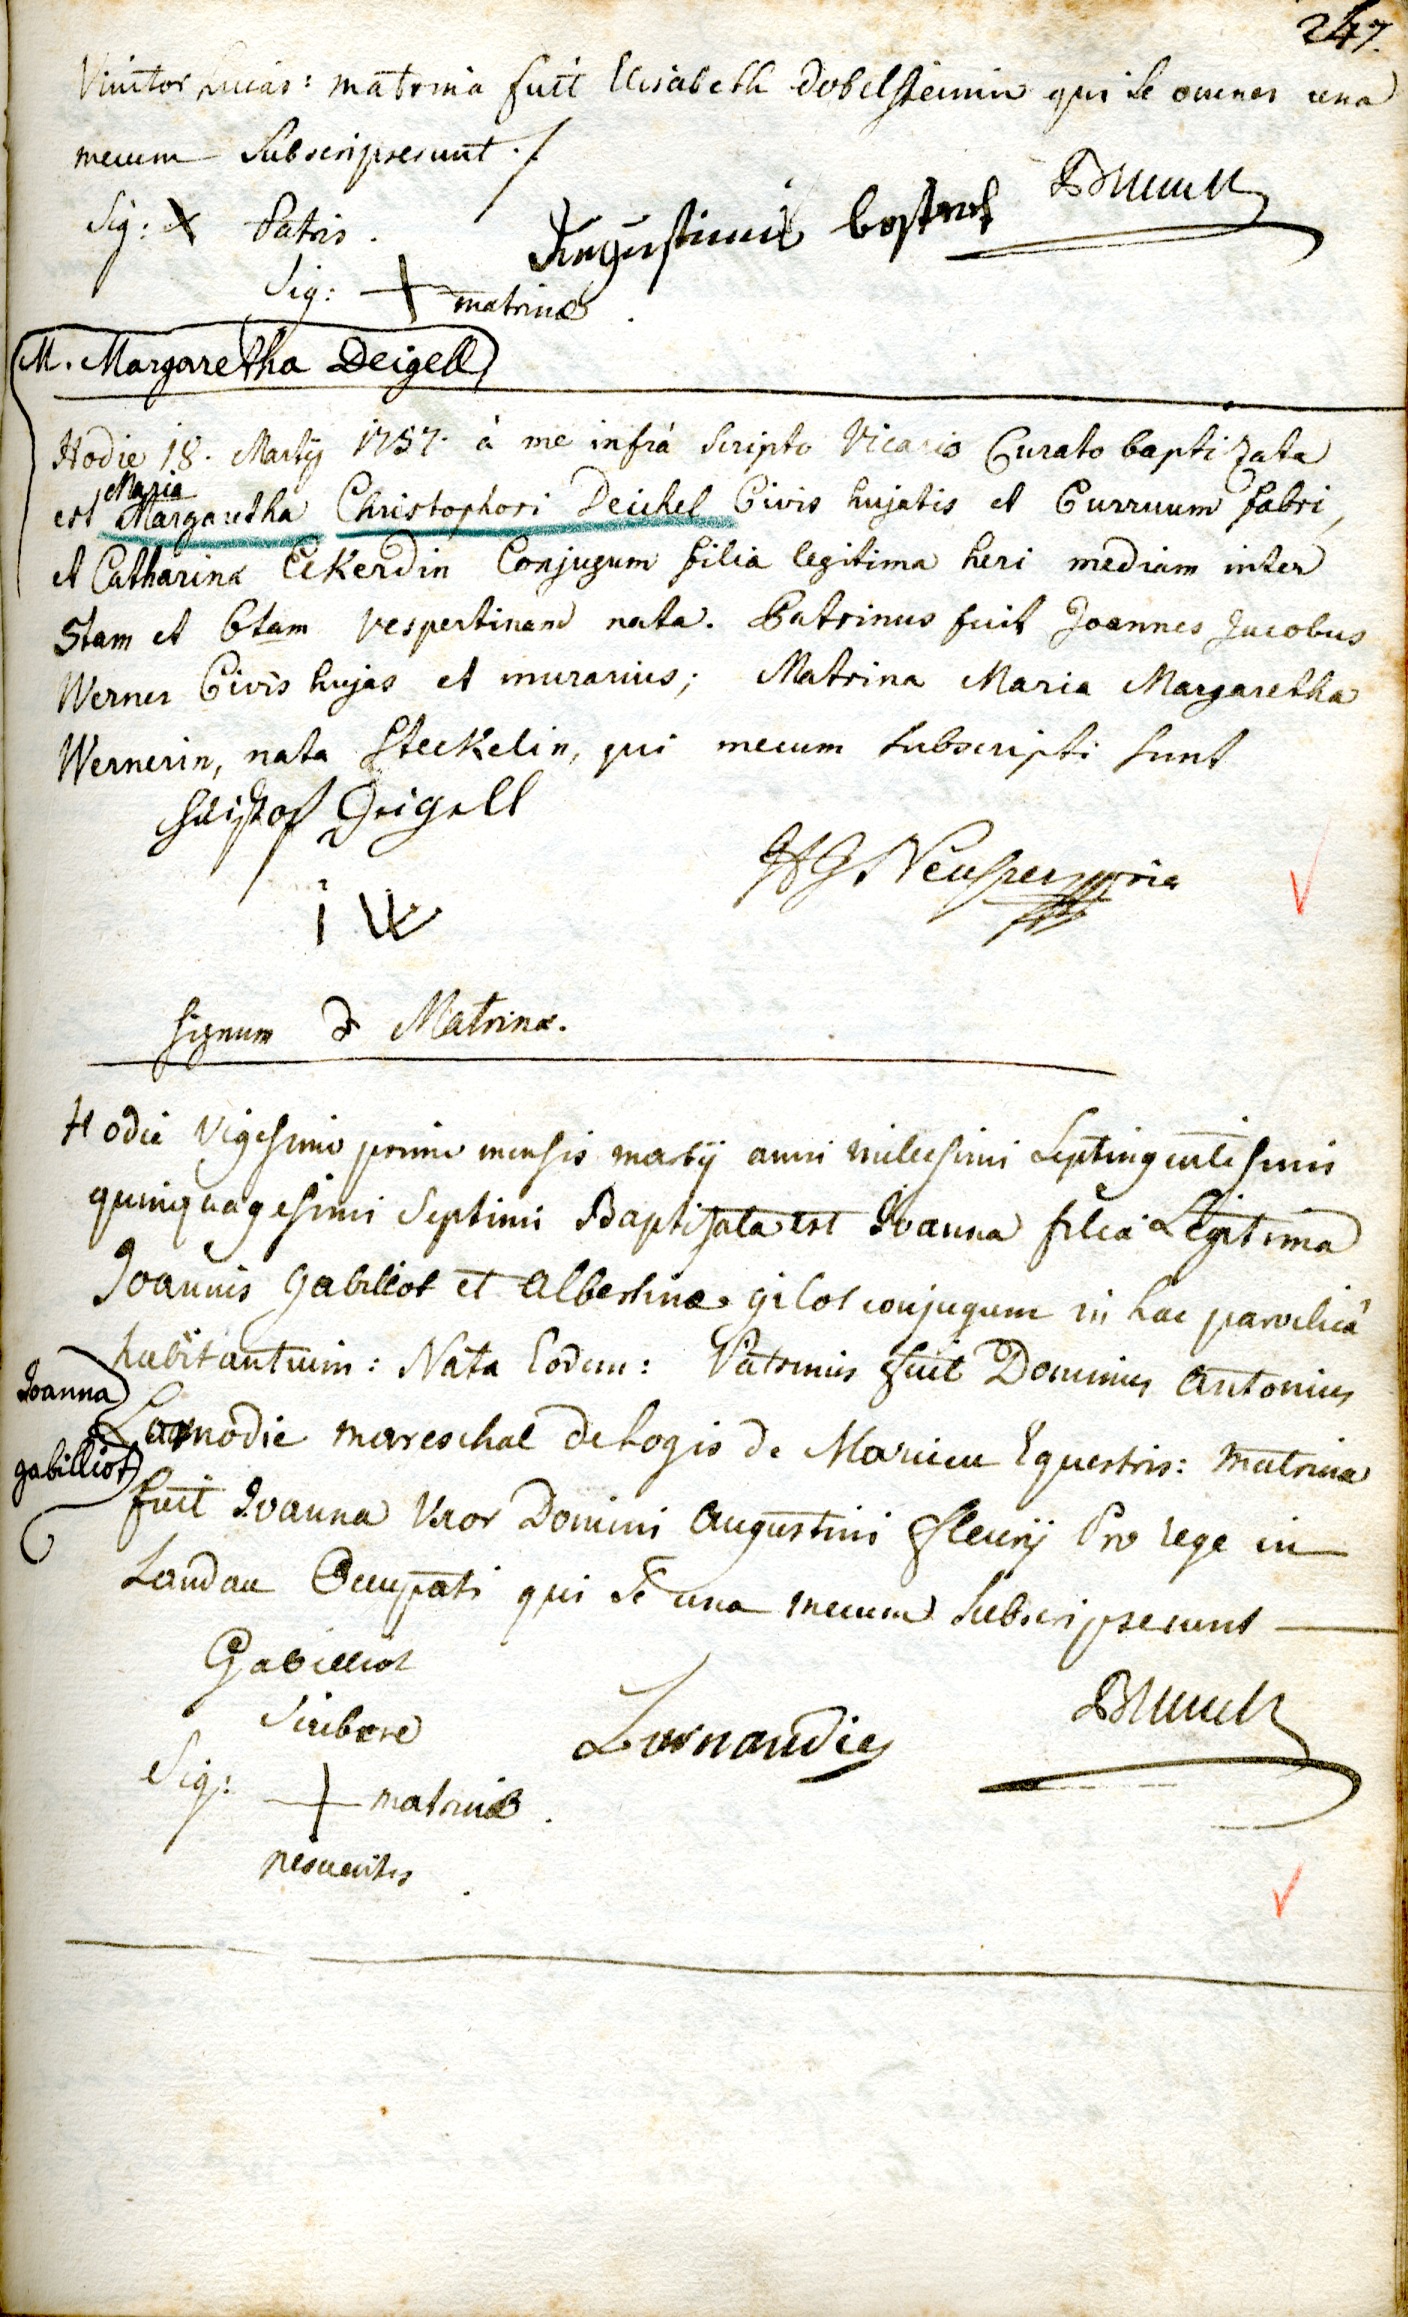 247.
Vinitor Lucas: matrina fuit Elisabeth Dobelsteinin qui se omnes una
mecum Subscripserunt ./
Sig: X Patris.
Augustinus
Sig: + matrinæ.
M. Margaretha Deigell
Hodie 18. Martij 1757. à me infrà Scripto Vicario Curato baptizata
est Maria Margaretha Christophori Deichel Civis hujatis et Curruum fabri,
et Catharina Eckerdin Conjugum filia legitima heri mediam inter
5tam et 6tam vespertinam nata. Patrinus fuit Joannes Jacobus
Werner Civis hujas et murarius; Matrina Maria Margaretha
Wernerin, nata Steckelin, qui mecum subscripti sunt
Christof Deigell
i W
signum Matrinæ.
Hodie vigesimo primo mensis martij anni millesimi Septingentesimi
quinquagesimi Septimi Baptisata est Joanna filia Legitima
Joannis Gabilliot et Albertinæ gilot conjugum in hac parochiâ
habitantium: Nata Eodem: Patrinus fuit Dominus Antonius
Joanna
gabilliot
Larnodie mareschal de Logis de Equestris: matrina
fuit Joanna Uxor Domini Augustini fleurij Pro rege in
Landau Occupati qui se una mecum Subscripserunt
Gabilliot
Scribere
Lornaudie
Sig: + matrinæ.
nescientis.